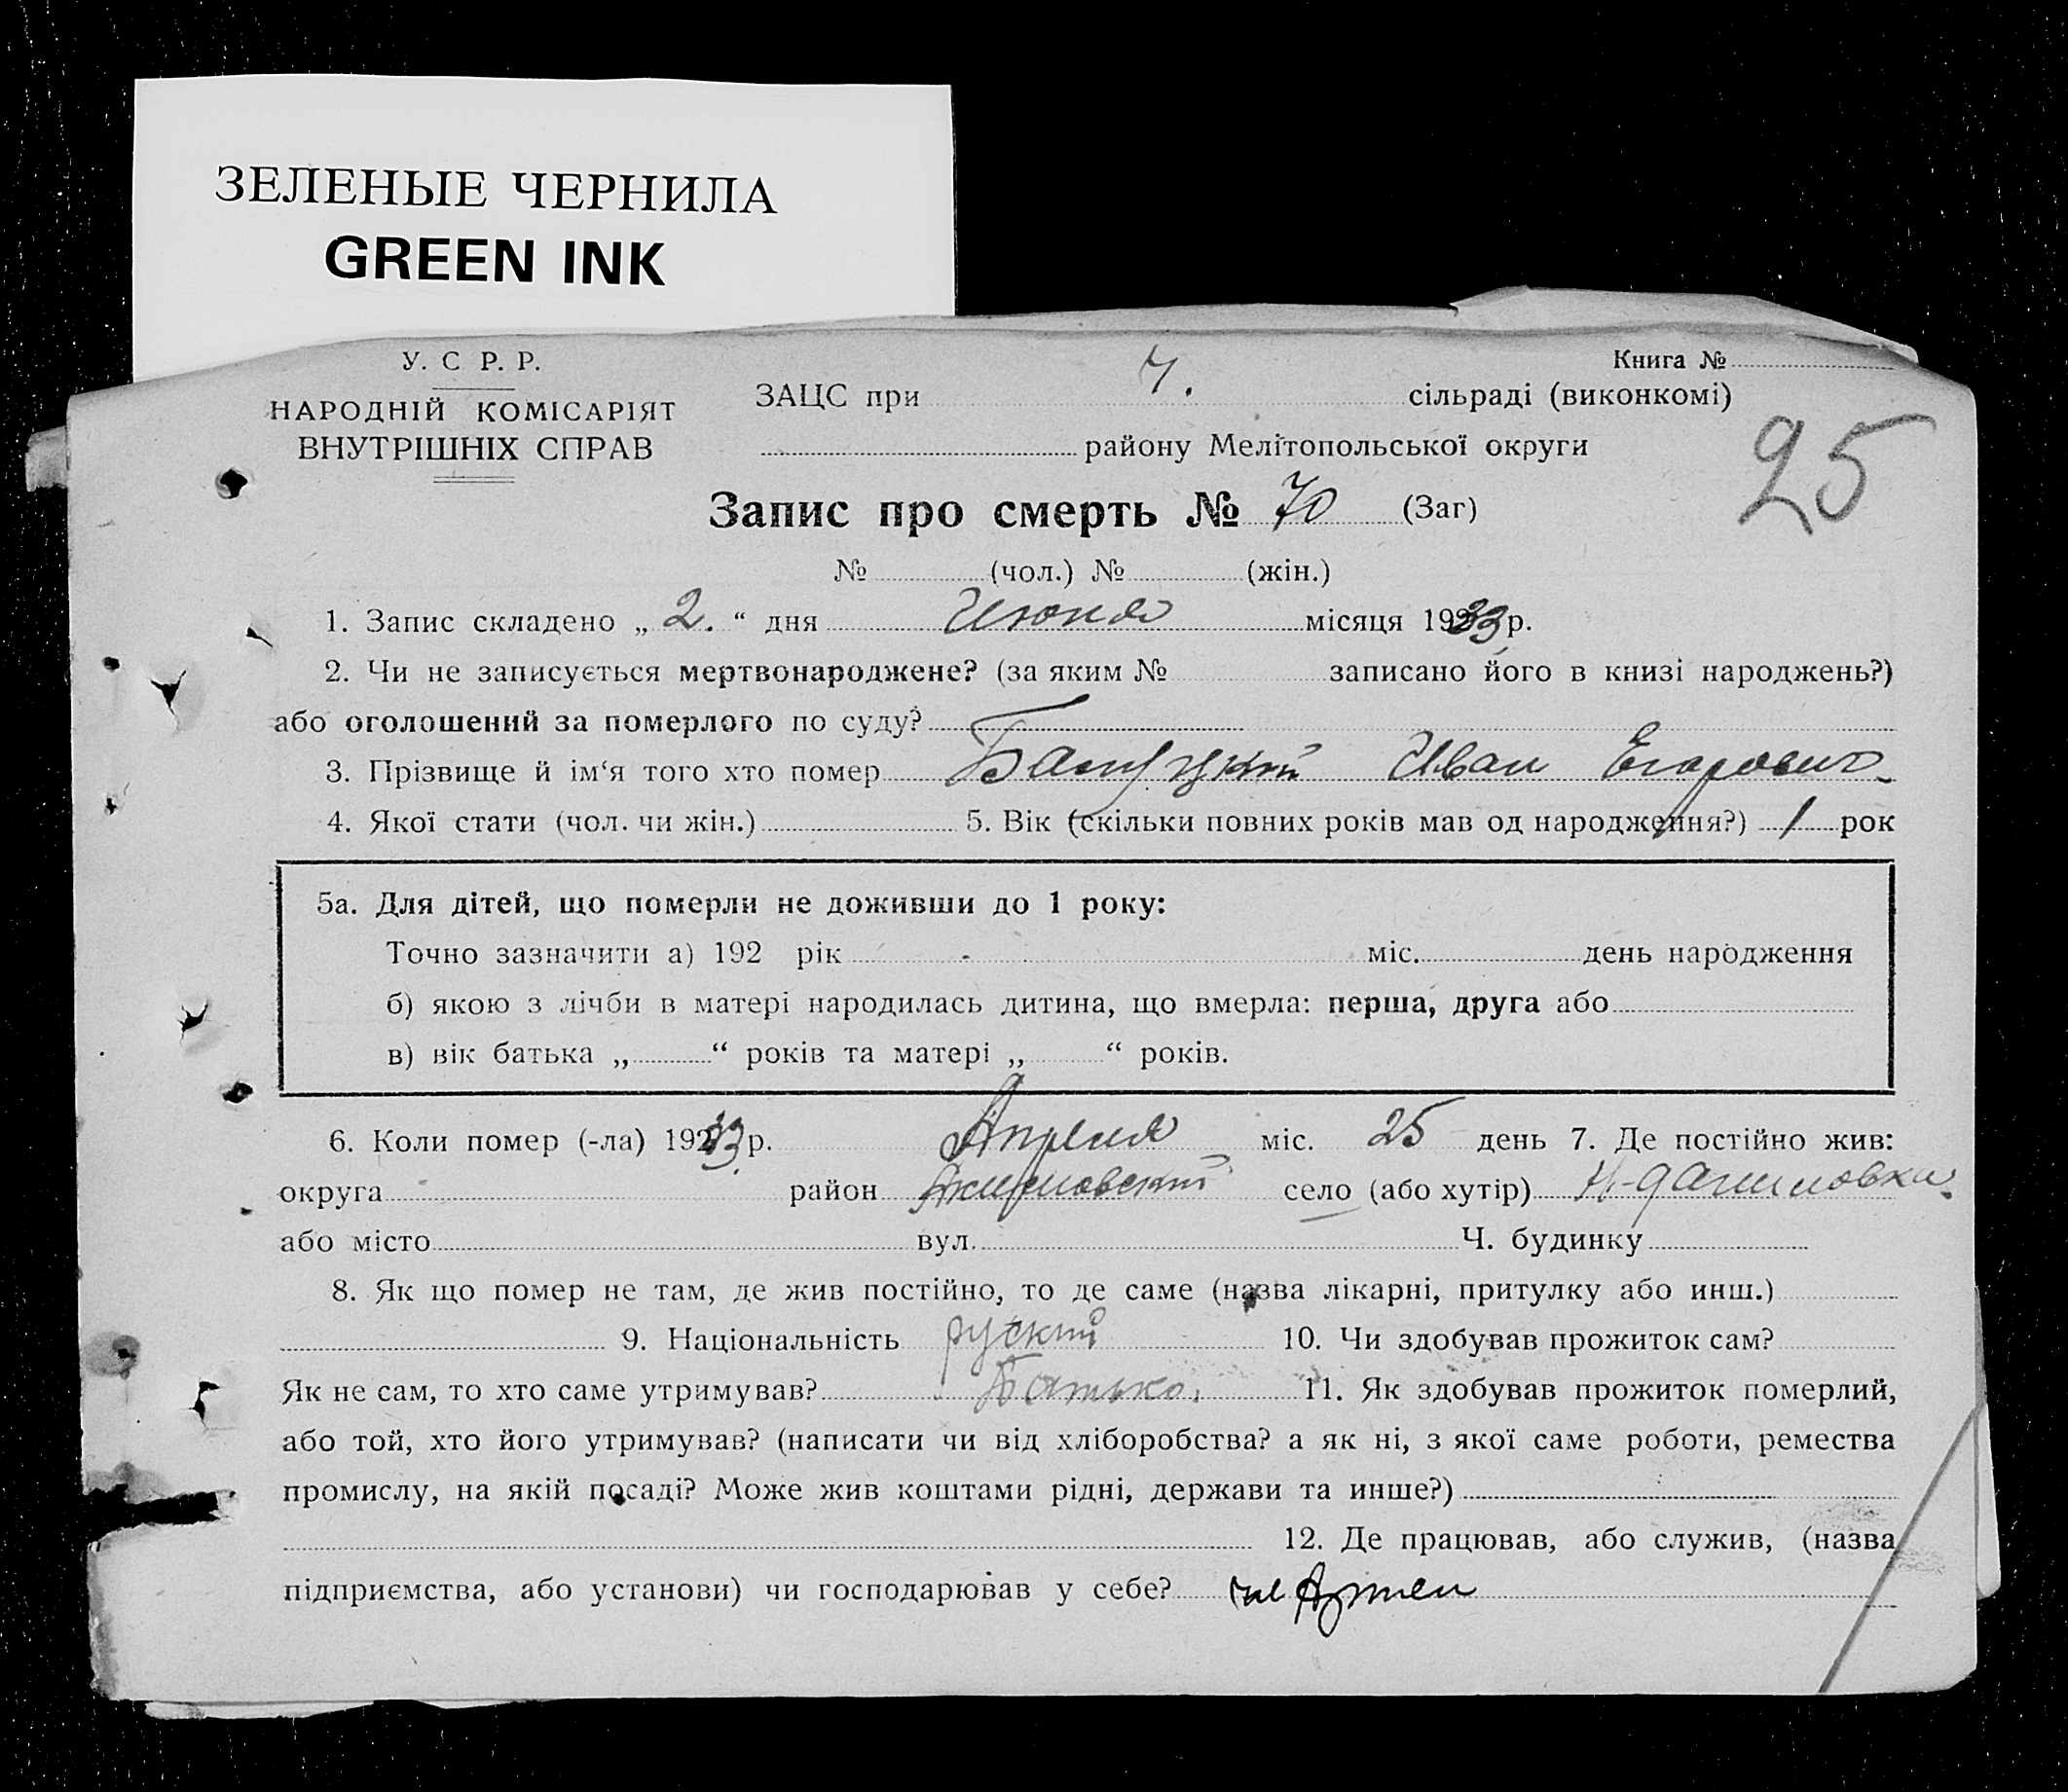 ЗЕЛЕНЫЕ ЧЕРНИЛА
GREEN INK
У. С Р. Р.
НАРОДНІЙ КОМІСАРІЯТ
ВНУТРІШНІХ СПРАВ
Книга №
ЗАЦС при сільраді (виконкомі)
району Мелітопольської округи
25
Запис про смерть № 70 (Заг)
№ (чол.) № (жін.)
1. Запис складено „ 2. “ дня Июня місяця 1933 р.
2. Чи не записується мертвонароджене? (за яким № записано його в книзі народжень?)
або оголошений за померлого по суду?
3. Прізвище й ім‘я того хто помер Иван Егорович
4. Якої стати (чол. чи жін.) 5. Вік (скільки повних років мав од народження?) 1 рок
5а. Для дітей, що померли не доживши до 1 року:
Точно зазначити а) 192 рік міс. день народження
б) якою з лічби в матері народилась дитина, що вмерла: перша, друга або
в) вік батька „ “ років та матері „ “ років.
6. Коли помер (-ла) 1933 р. Апреля міс. 25 день 7. Де постійно жив:
округа район Акимовский село (або хутір) Н-Даниловки
або місто вул. Ч. будинку
8. Як що помер не там, де жив постійно, то де саме (назва лікарні, притулку або инш.)
9. Національність руский 10. Чи здобував прожиток сам?
Як не сам, то хто саме утримував? Батько. 11. Як здобував прожиток померлий,
або той, хто його утримував? (написати чи від хліборобства? а як ні, з якої саме роботи, ремества
промислу, на якій посаді? Може жив коштами рідні, держави та инше?)
12. Де працював, або служив, (назва
підприємства, або установи) чи господарював у себе?